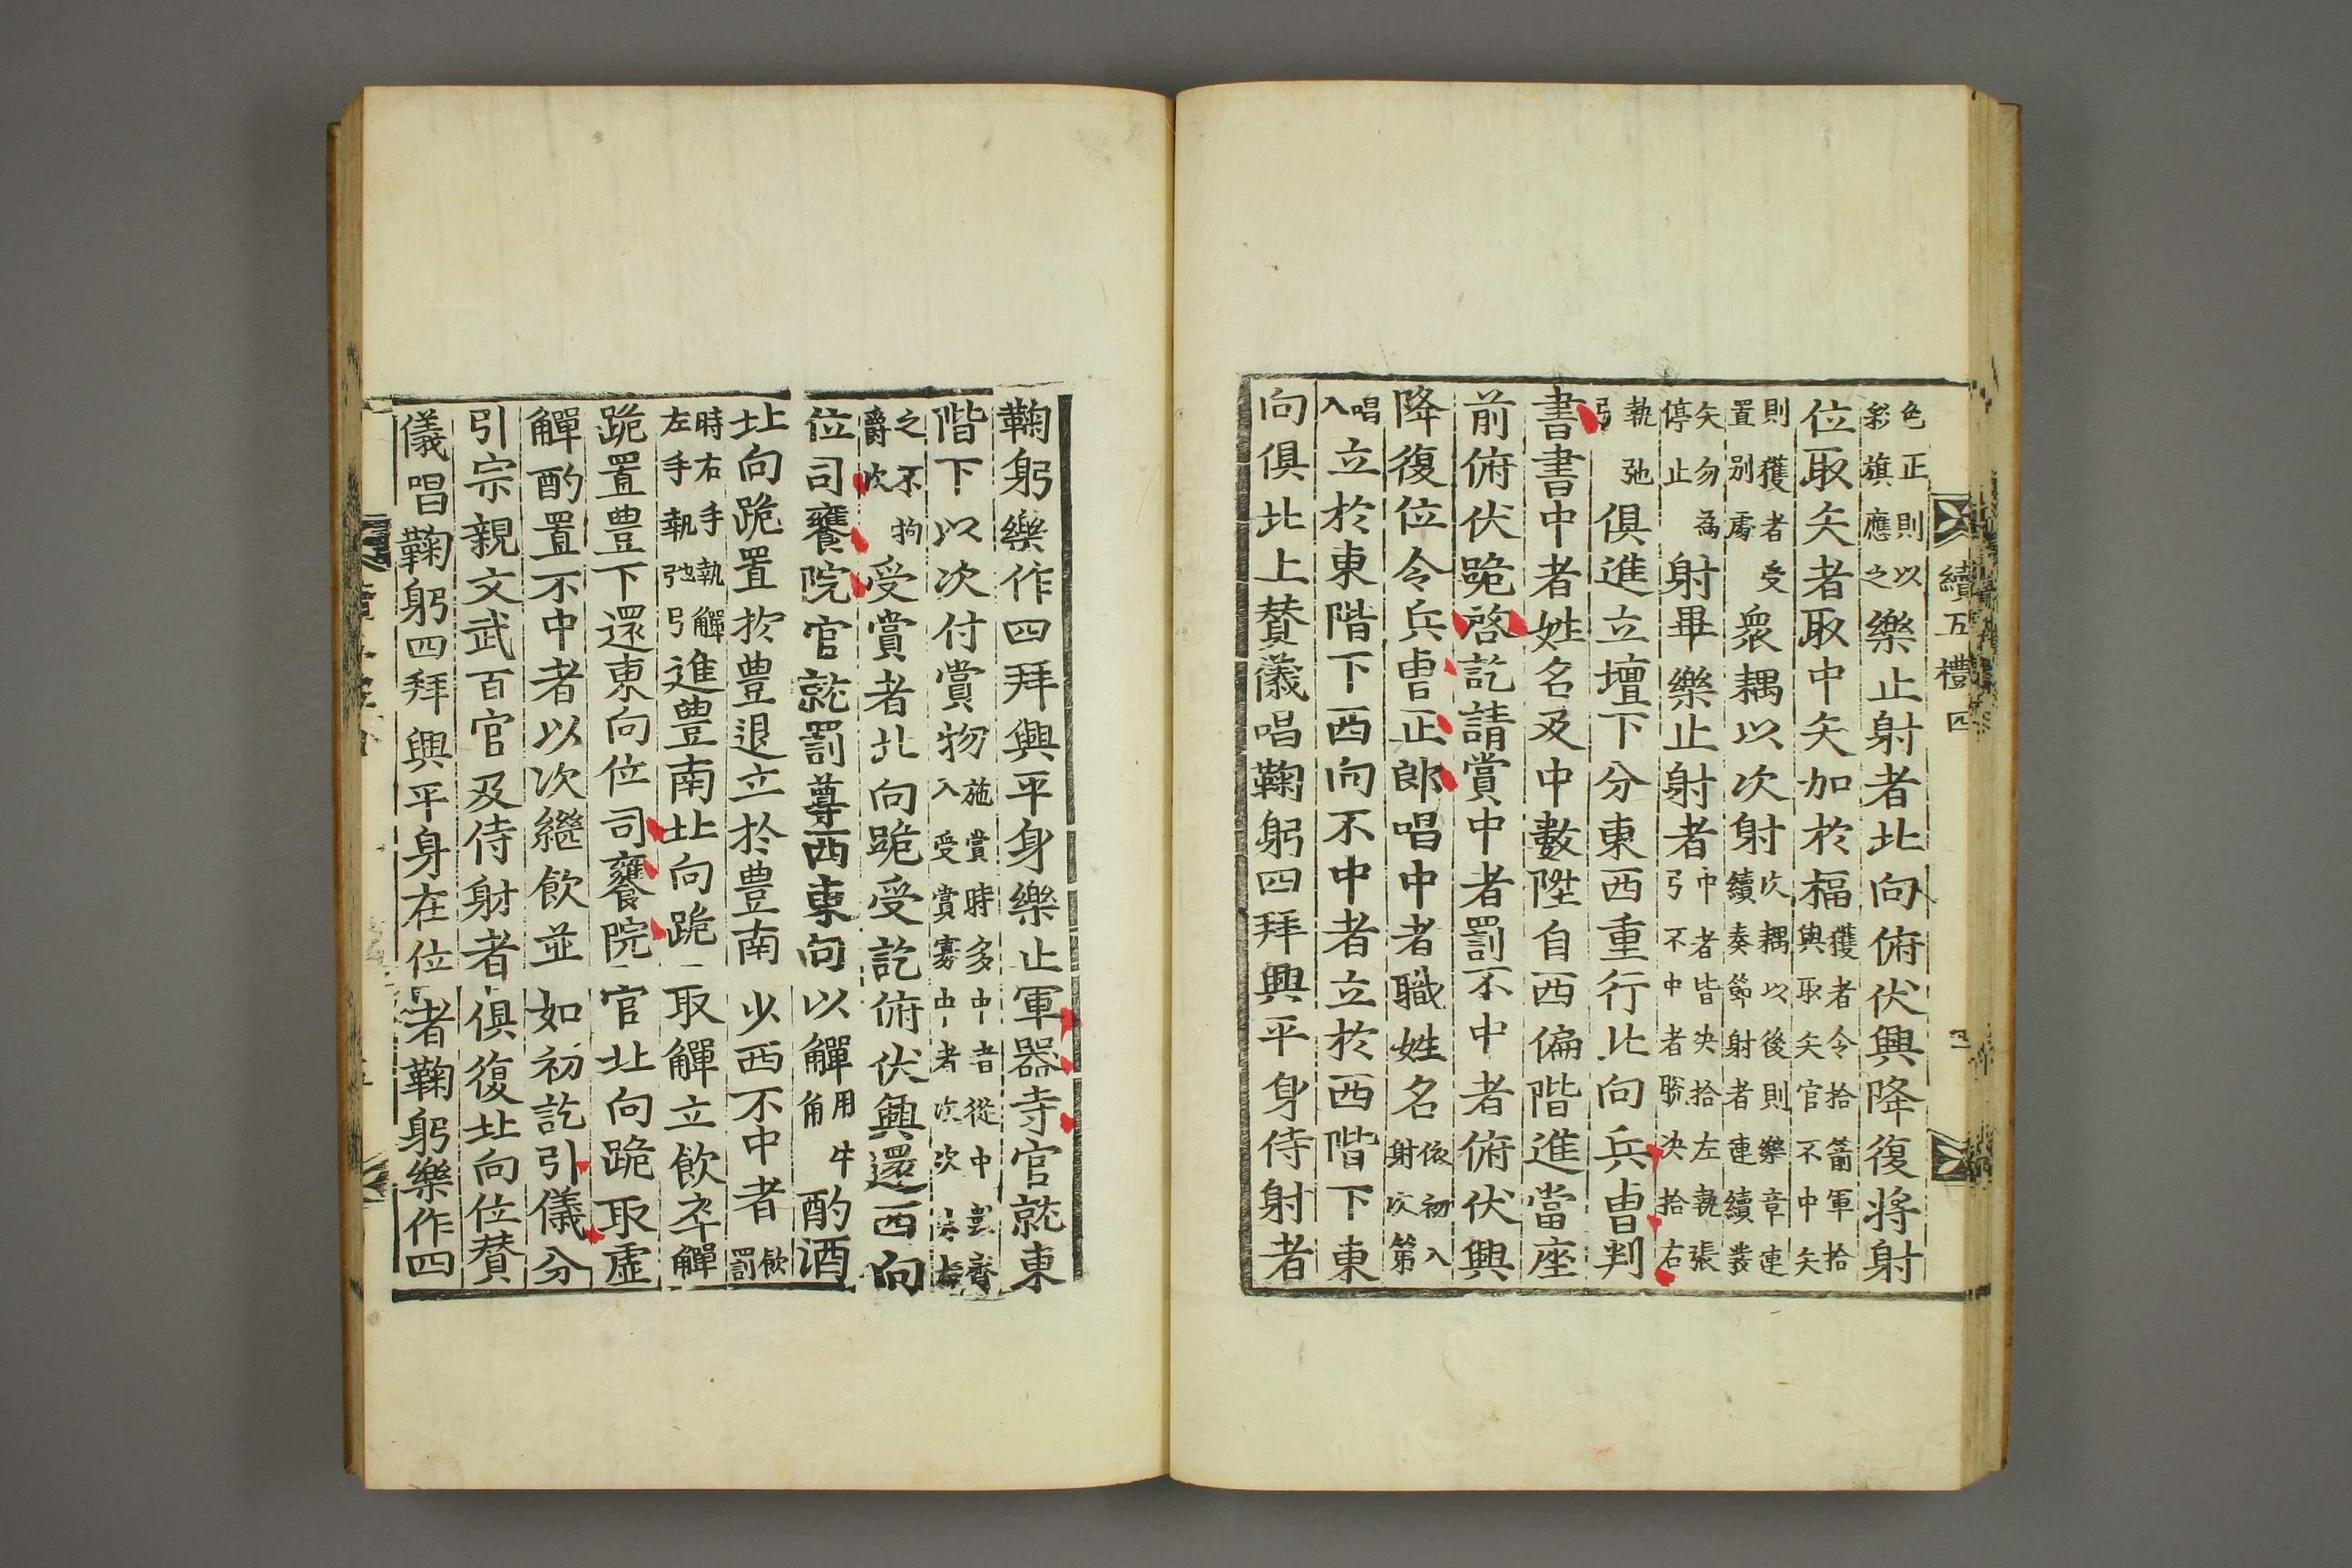 續五禮四
色正則以
彩旗應之
樂止射者北向俯伏興降復將射
位取矢者取中矢加於楅
獲者令拾箭軍拾
與取矢官不中矢
則獲者受
置別處
衆耦以次射
次耦以後則樂章連
續奏節射者連續發
矢勿爲
停止
射畢樂止射者
中者皆决拾左執張
弓不中者脫决拾右
執弛
弓
俱進立壇下分東西重行北向兵曹判
書書中者姓名及中數陞自西偏階進當座
前俯伏跪啓訖請賞中者罰不中者俯伏興
降復位令兵曹正郎唱中者職姓名
依初入
射次第
唱
入
立於東階下西向不中者立於西階下東
向俱北上贊儀唱鞠躬四拜興平身侍射者
鞠躬樂作四拜興平身樂止軍器寺官就東
階下以次付賞物
施賞時多中者從中
入受賞寡中者次次
之不拘
爵次
受賞者北向跪受訖俯伏興還西向
位司饔院官就罰尊西東向以觶
用牛
角
酌酒
北向跪置於豊退立於豊南少西不中者
飮
罰
時右手執觶
左手執弛弓
進豊南北向跪取觶立飮卒觶
跪置豊下還東向位司饔院官北向跪取虛
觶酌置不中者以次繼飮並如初訖引儀分
引宗親文武百官及侍射者俱復北向位贊
儀唱鞠躬四拜興平身在位者鞠躬樂作四